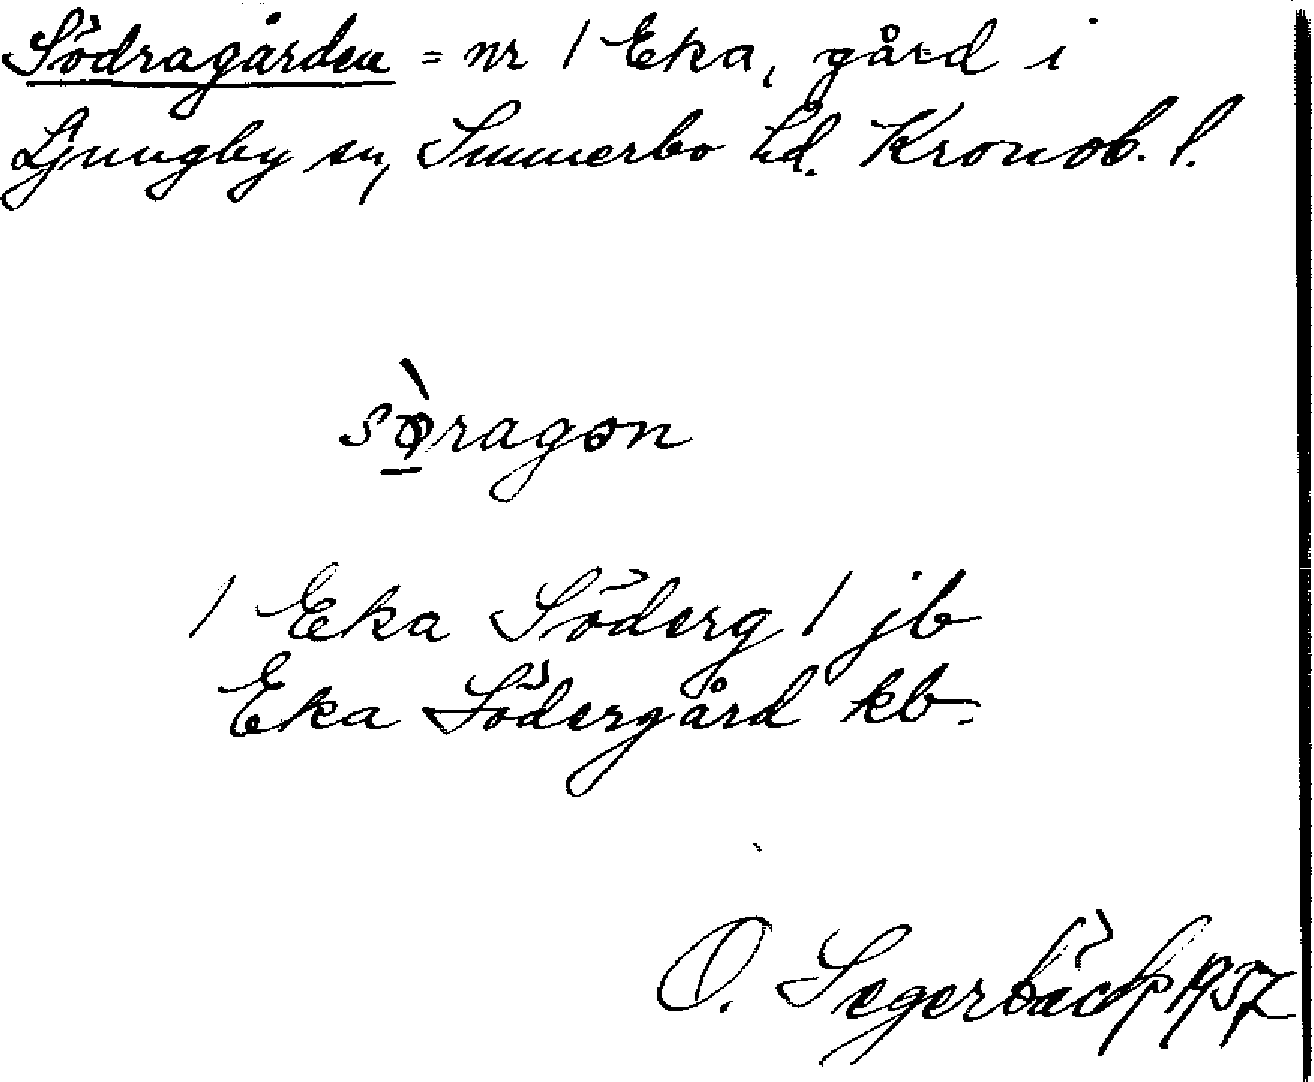 Södragården = nr 1 Eka, gård i
Ljungby sn, Sunnerbo hd. Kronob. l.
sø̀ragɔn
1 Eka Söderg 1 jb
Eka Södergård kb.
O. Segerbäck 1957